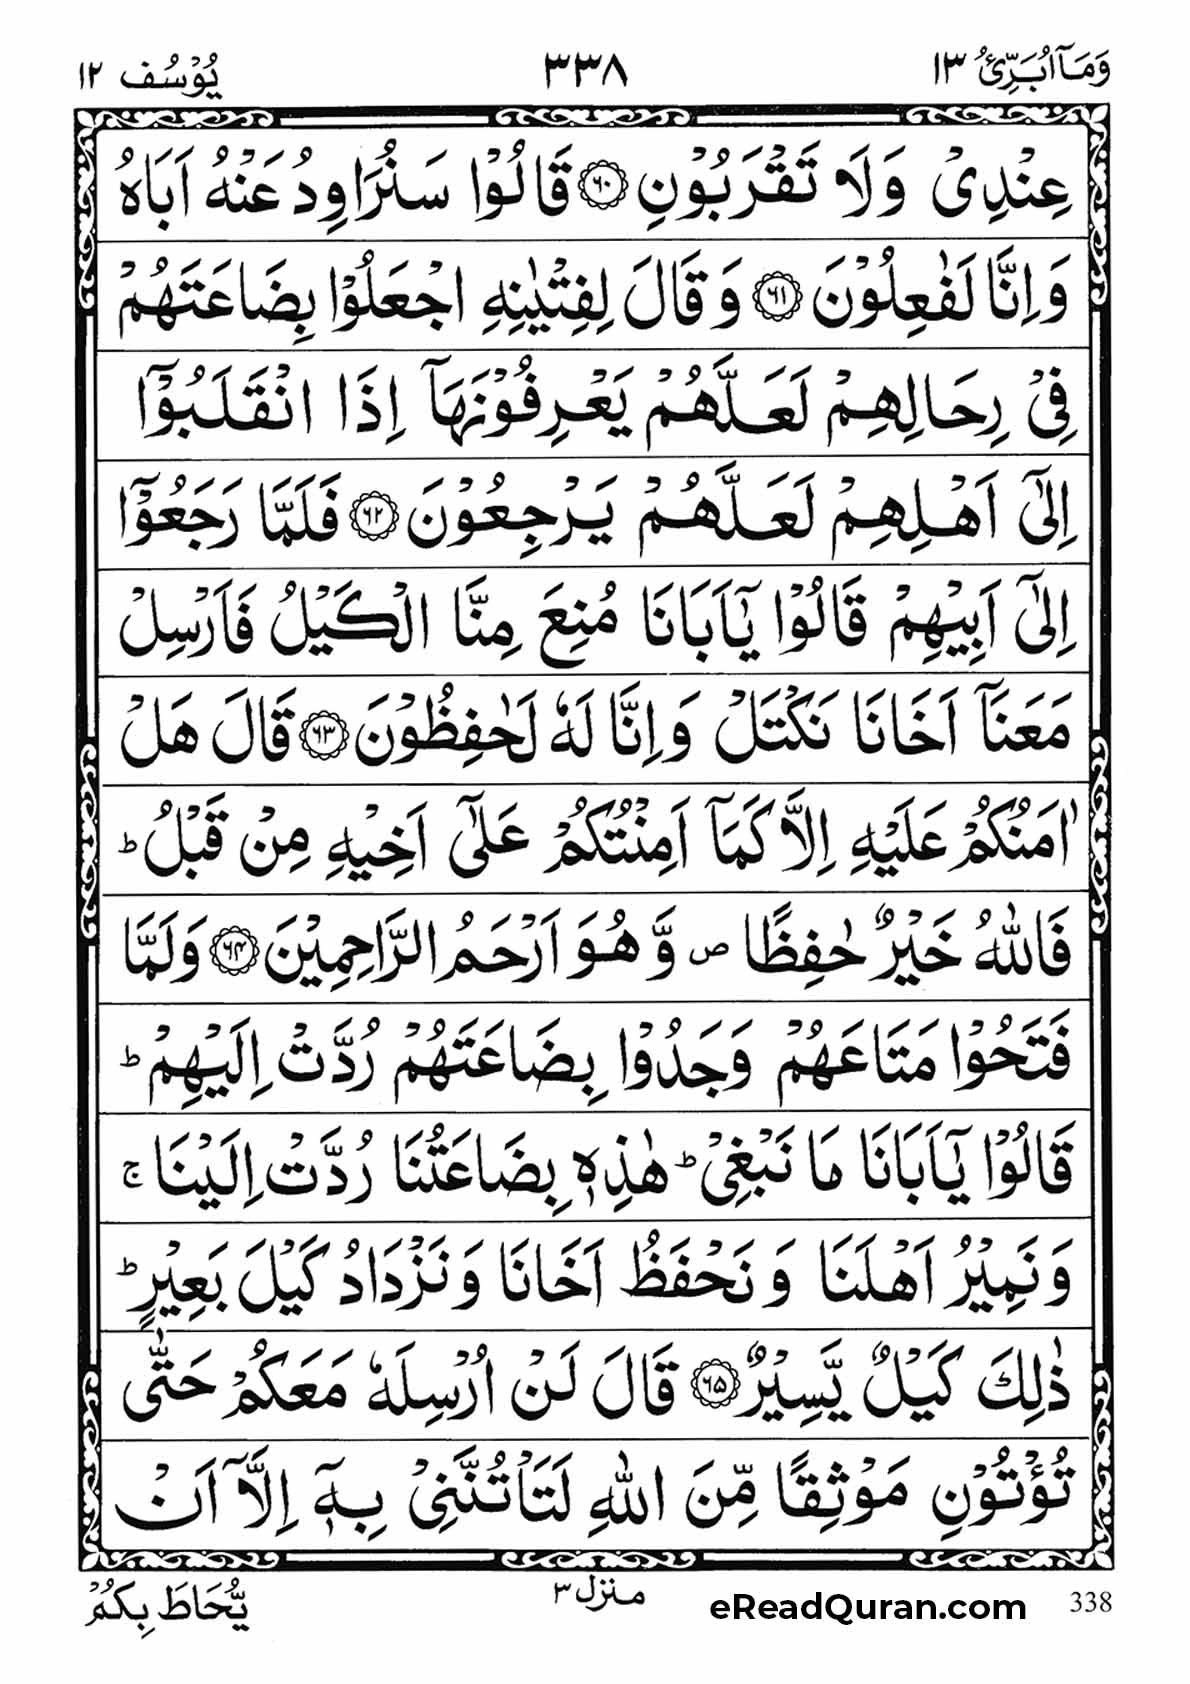 وَمَاۤ اُبَرِّئُ ١٣
٣٣٨
يُوْسُف ١٢
عِنْدِىْ وَلَا تَقْرَبُوْنِ ﴿٦٠﴾ قَالُوْا سَنُرَاوِدُ عَنْهُ اَبَاهُ
وَاِنَّا لَفٰعِلُوْنَ ﴿٦١﴾ وَقَالَ لِفِتْيٰنِهِ اجْعَلُوْا بِضَاعَتَهُمْ
فِىْ رِحَالِهِمْ لَعَلَّهُمْ يَعْرِفُوْنَهَاۤ اِذَا انْقَلَبُوْۤا
اِلٰٓى اَهْلِهِمْ لَعَلَّهُمْ يَرْجِعُوْنَ ﴿٦٢﴾ فَلَمَّا رَجَعُوْۤا
اِلٰٓى اَبِيْهِمْ قَالُوْا يٰۤاَبَانَا مُنِعَ مِنَّا الْكَيْلُ فَاَرْسِلْ
مَعَنَاۤ اَخَانَا نَكْتَلْ وَاِنَّا لَهٗ لَحٰفِظُوْنَ ﴿٦٣﴾ قَالَ هَلْ
اٰمَنُكُمْ عَلَيْهِ اِلَّا كَمَاۤ اَمِنْتُكُمْ عَلٰٓى اَخِيْهِ مِنْ قَبْلُ ؕ
فَاللّٰهُ خَيْرٌ حٰفِظًا ص وَّهُوَ اَرْحَمُ الرَّاحِمِيْنَ ﴿٦٤﴾ وَلَمَّا
فَتَحُوْا مَتَاعَهُمْ وَجَدُوْا بِضَاعَتَهُمْ رُدَّتْ اِلَيْهِمْ ؕ
قَالُوْا يٰۤاَبَانَا مَا نَبْغِىْ ؕ هٰذِهٖ بِضَاعَتُنَا رُدَّتْ اِلَيْنَا ج
وَنَمِيْرُ اَهْلَنَا وَنَحْفَظُ اَخَانَا وَنَزْدَادُ كَيْلَ بَعِيْرٍ ؕ
ذٰلِكَ كَيْلٌ يَّسِيْرٌ ﴿٦٥﴾ قَالَ لَنْ اُرْسِلَهٗ مَعَكُمْ حَتّٰى
تُؤْتُوْنِ مَوْثِقًا مِّنَ اللّٰهِ لَتَاْتُنَّنِىْ بِهٖۤ اِلَّاۤ اَنْ
يُّحَاطَ بِكُمْ
منزل ٣
eReadQuran.com
338